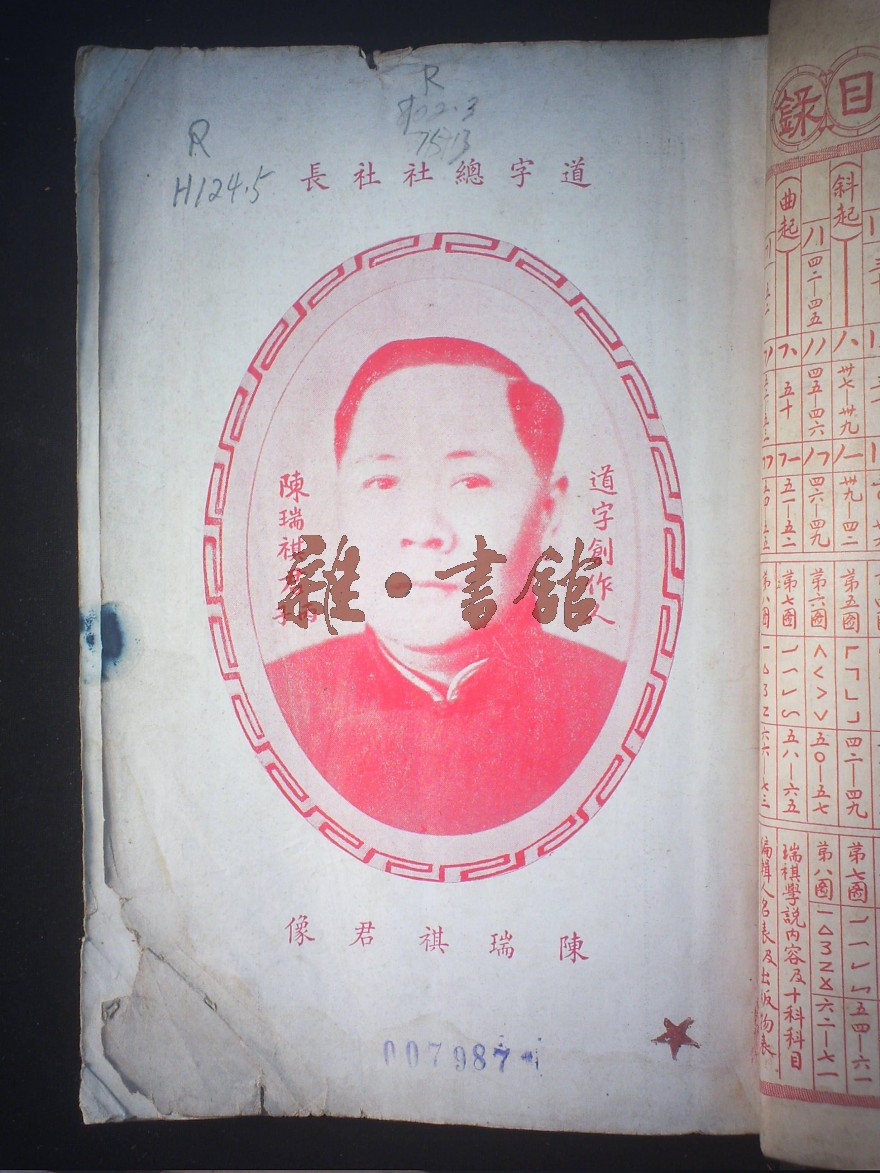 R
R
H124.5
道字總社社長
道字創作人
陳瑞祺君
雜·書館
陳瑞祺君像
007987
目錄
(斜起)
(曲起)
四二—四五
卅七—卅九
四五—四六
五十
卅九—四二
四六—四九
五一—五二
第五圖
第六圖
第七圖
第八圖
四二—四九
五〇—五七
五八—六五
六六—七三
第七圖
五四—六一
第八圖
六二—七一
瑞祺學說內容及十科科目
編輯人名表及出版物表